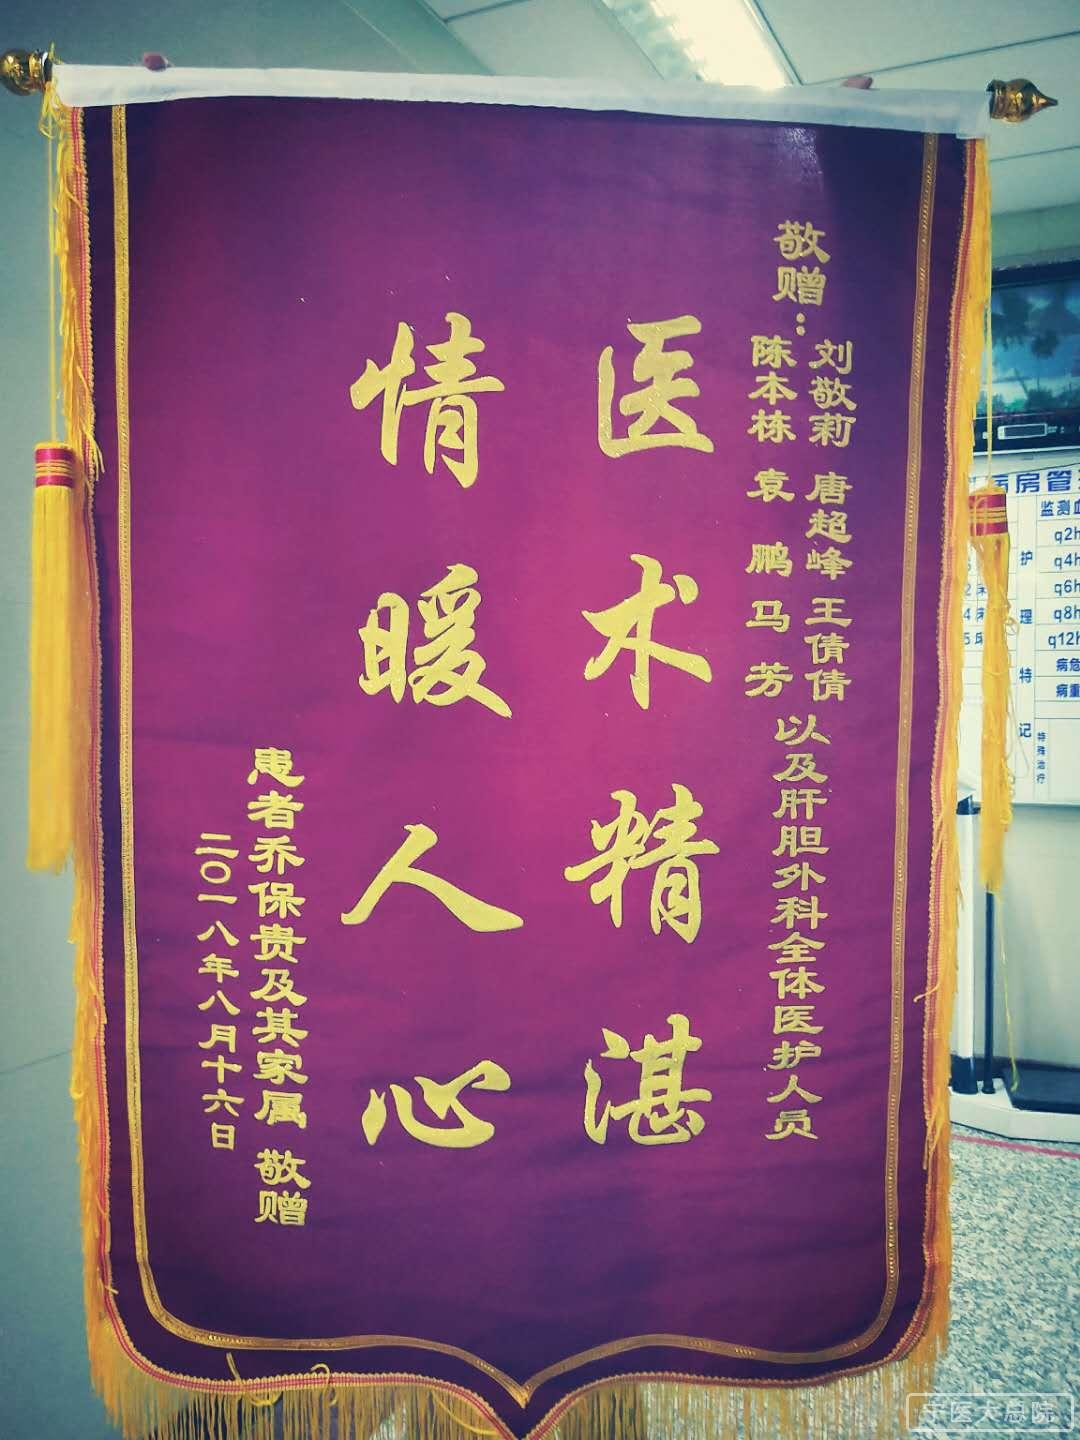 敬赠：
刘敬莉 唐超峰 王倩倩
陈本栋 袁鹏 马芳
以及肝胆外科全体医护人员
医术精湛
情暖人心
患者乔保贵及其家属 敬赠
二〇一八年八月十六日
病房管
监测血
q2h
q4h
q6h
q8h
q12h
病危
病重
护理特记
特殊治疗
宁医大总院